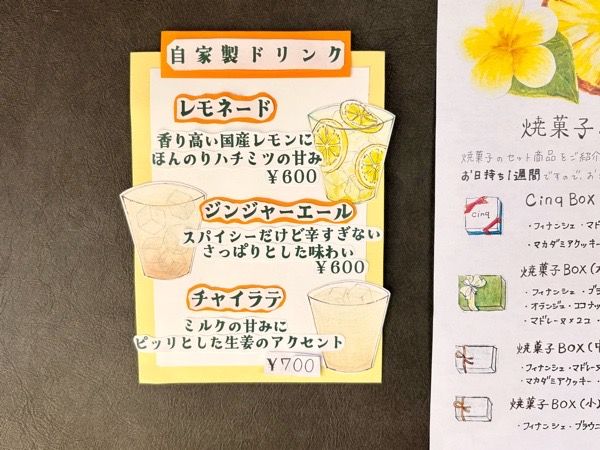 自家製ドリンク
レモネード
香り高い国産レモンに
ほんのりハチミツの甘み
￥600
ジンジャーエール
スパイシーだけど辛すぎない
さっぱりとした味わい
￥600
チャイラテ
ミルクの甘みに
ピッリとした生姜のアクセント
￥700
焼菓子
焼菓子のセット商品をご紹介
お日持ち1週間ですので、お
Cinq
Cinq BOX
・フィナンシェ・マド
・マカダミアクッキー
焼菓子BOX(大
・フィナンシェ・ブラ
・オランジェ・ココナッ
・マドレーヌ×2コ・
焼菓子BOX(中
・フィナンシェ・マドレーヌ
・マカダミアクッキー・
焼菓子BOX(小)
・フィナンシェ・ブラウニ